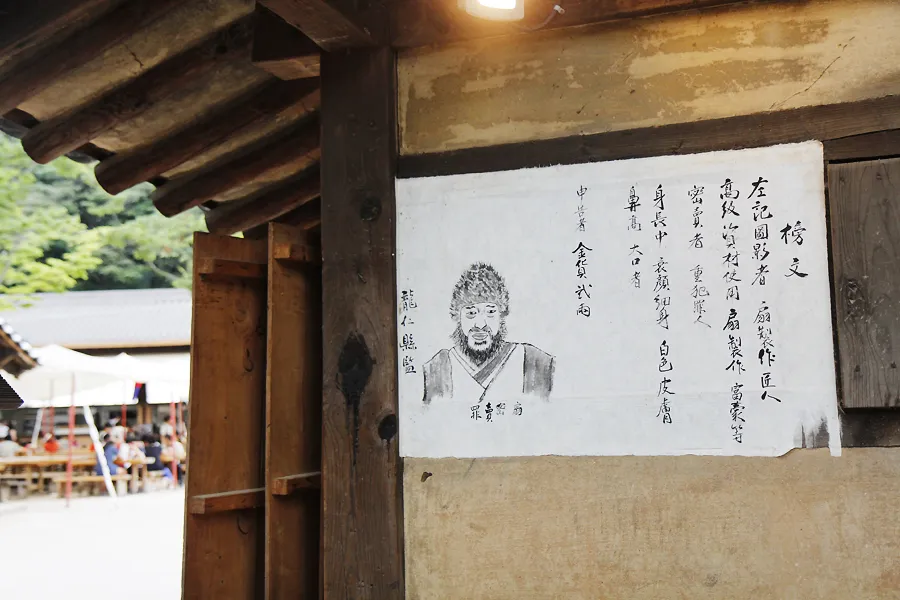 榜文
左記圖影者 扇製作匠人
高級資材使用 扇製作 富豪等
密賣者 重犯罪人
身長中 衰顔細身 白色皮膚
鼻高 大口者
申告者 金貨貳兩
扇密賣罪
龍仁縣監